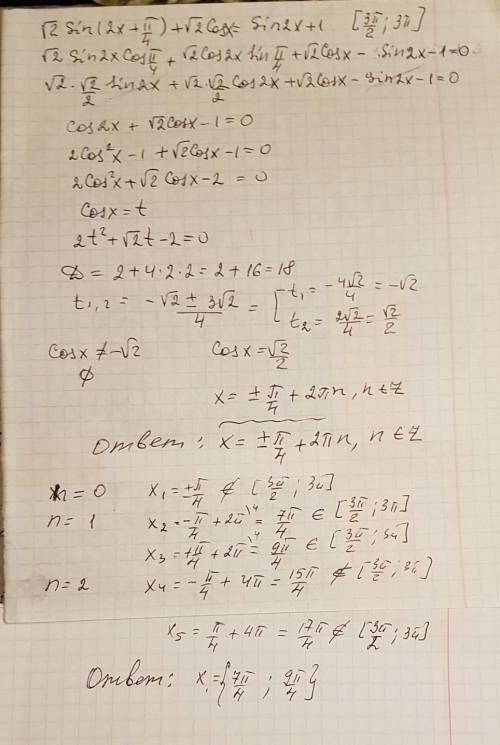 √2 Sin(2x + π/4) + √2 Cosx = Sin2x + 1 [3π/2 ; 3π]
√2 Sin2x Cos π/4 + √2 Cos2x Sin π/4 + √2 Cosx − Sin2x − 1 = 0
√2 · √2/2 Sin2x + √2 · √2/2 Cos2x + √2 Cosx − Sin2x − 1 = 0
Cos2x + √2 Cosx − 1 = 0
2Cos²x − 1 + √2 Cosx − 1 = 0
2Cos²x + √2 Cosx − 2 = 0
Cosx = t
2t² + √2t − 2 = 0
D = 2 + 4·2·2 = 2 + 16 = 18
t₁,₂ = (−√2 ± 3√2)/4 = [ t₁ = −4√2/4 = −√2
t₂ = 2√2/4 = √2/2
Cosx ≠ −√2 Cosx = √2/2
∅
x = ± π/4 + 2πn, n ∈ Z
Ответ: x = ± π/4 + 2πn, n ∈ Z
n = 0 x₁ = ±π/4 ∉ [3π/2 ; 3π]
n = 1 x₂ = −π/4 + 2π\4 = 7π/4 ∈ [3π/2 ; 3π]
x₃ = +π/4 + 2π\4 = 9π/4 ∈ [3π/2 ; 3π]
n = 2 x₄ = −π/4 + 4π = 15π/4 ∉ [3π/2 ; 3π]
x₅ = π/4 + 4π = 17π/4 ∉ [3π/2 ; 3π]
Ответ: x = {7π/4 ; 9π/4}